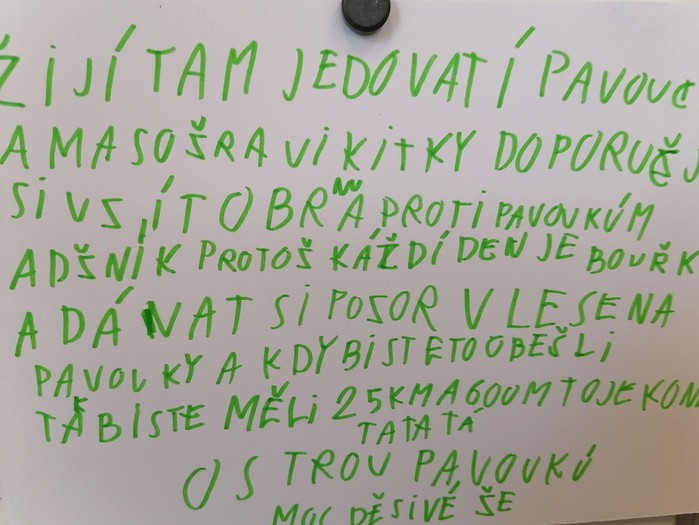 ŽIJÍ TAM JEDOVATÍ PAVOUC
A MASOŽRAVI KITKY DOPORUČ
SI VS,ÍT OBRAŇU PROTI PAVOUKÚM
A DŠNÍK PROTOŠ KÁŽDÍ DEN JE BOUŘK
A DÁVAT SI POZOR V LESE NA
PAVOUKY A KDY BISTE TO OBĚŠLI
TAK BISTE MĚLI 25KM A 600M TO JE KON
TATATÁ
OSTROU PAVOUKÚ
MOC DĚSIVÉ ŠE